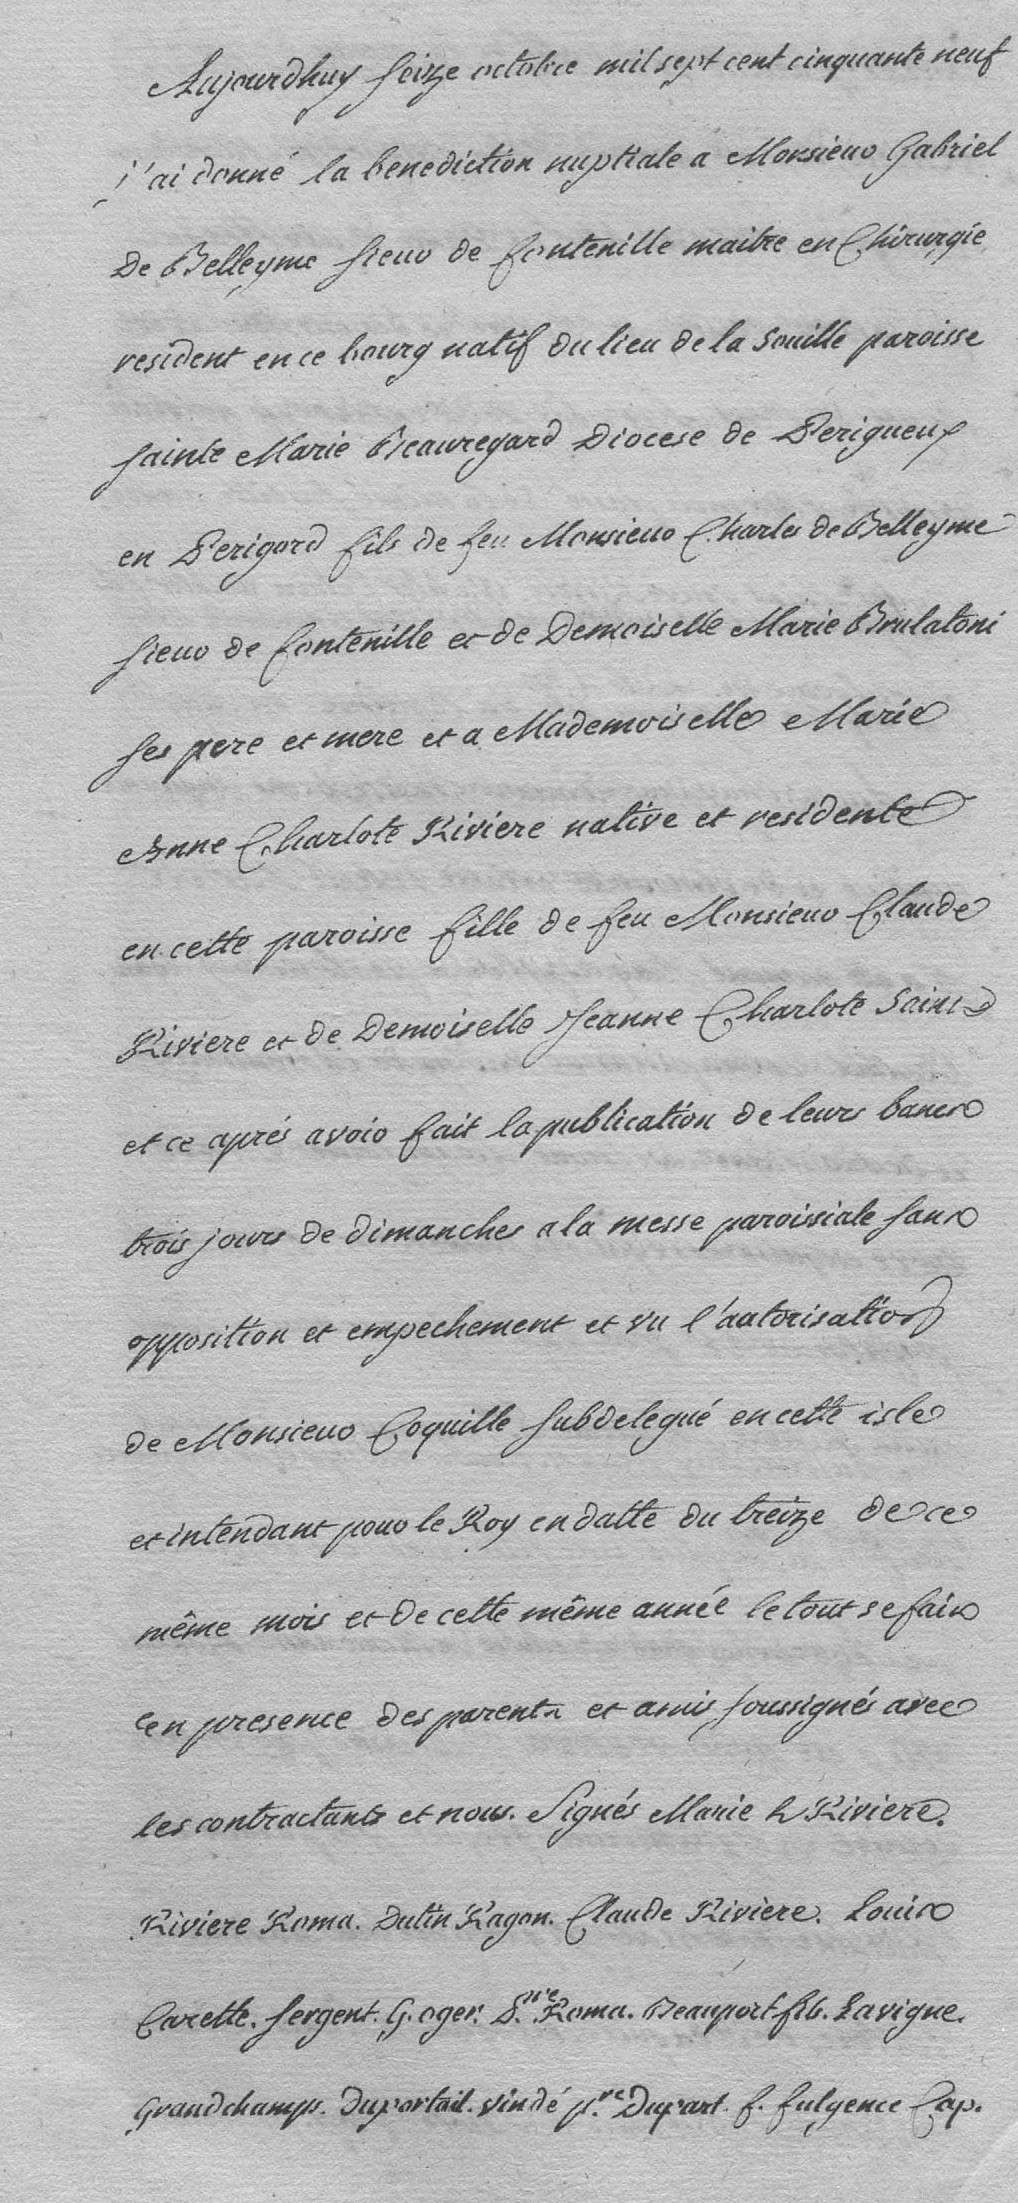 Aujourdhuy seize octobre mil sept cent cinquante neuf
j'ai donné la benediction nuptiale a Monsieur Gabriel
De Belleyme sieur de fontenille maitre en Chirurgie
resident en ce bourg natif du lieu de la Souille paroisse
sainte Marie Beauregard Diocese de Perigueux
en Perigord fils de feu Monsieur Charles de Belleyme
sieur de fontenille et de Demoiselle Marie Brulatoni
ses pere et mere et a Mademoiselle Marie
Anne Charlote Riviere native et residente
en cette paroisse fille de feu Monsieur Claude
Riviere et de Demoiselle Jeanne Charlote Saint
et ce aprés avoir fait la publication de leurs bancs
trois jours de dimanches a la messe paroissiale sans
opposition et empechement et vu l'autorisation
de Monsieur Coquille subdelegué en cette isle
et intendant pour le Roy en datte du treize de ce
même mois et de cette même année le tout s'e fait
en presence des parents et amis soussignés avec
les contractants et nous. Signés Marie Riviere.
Riviere Roma. Dutin Ragon. Claude Riviere. Louis
Carette. sergent. G. oger. Roma. Beauport fils. Lavigne.
Grandchamps. Duportail. vindé pre. Dupart. f. fulgence Cap.